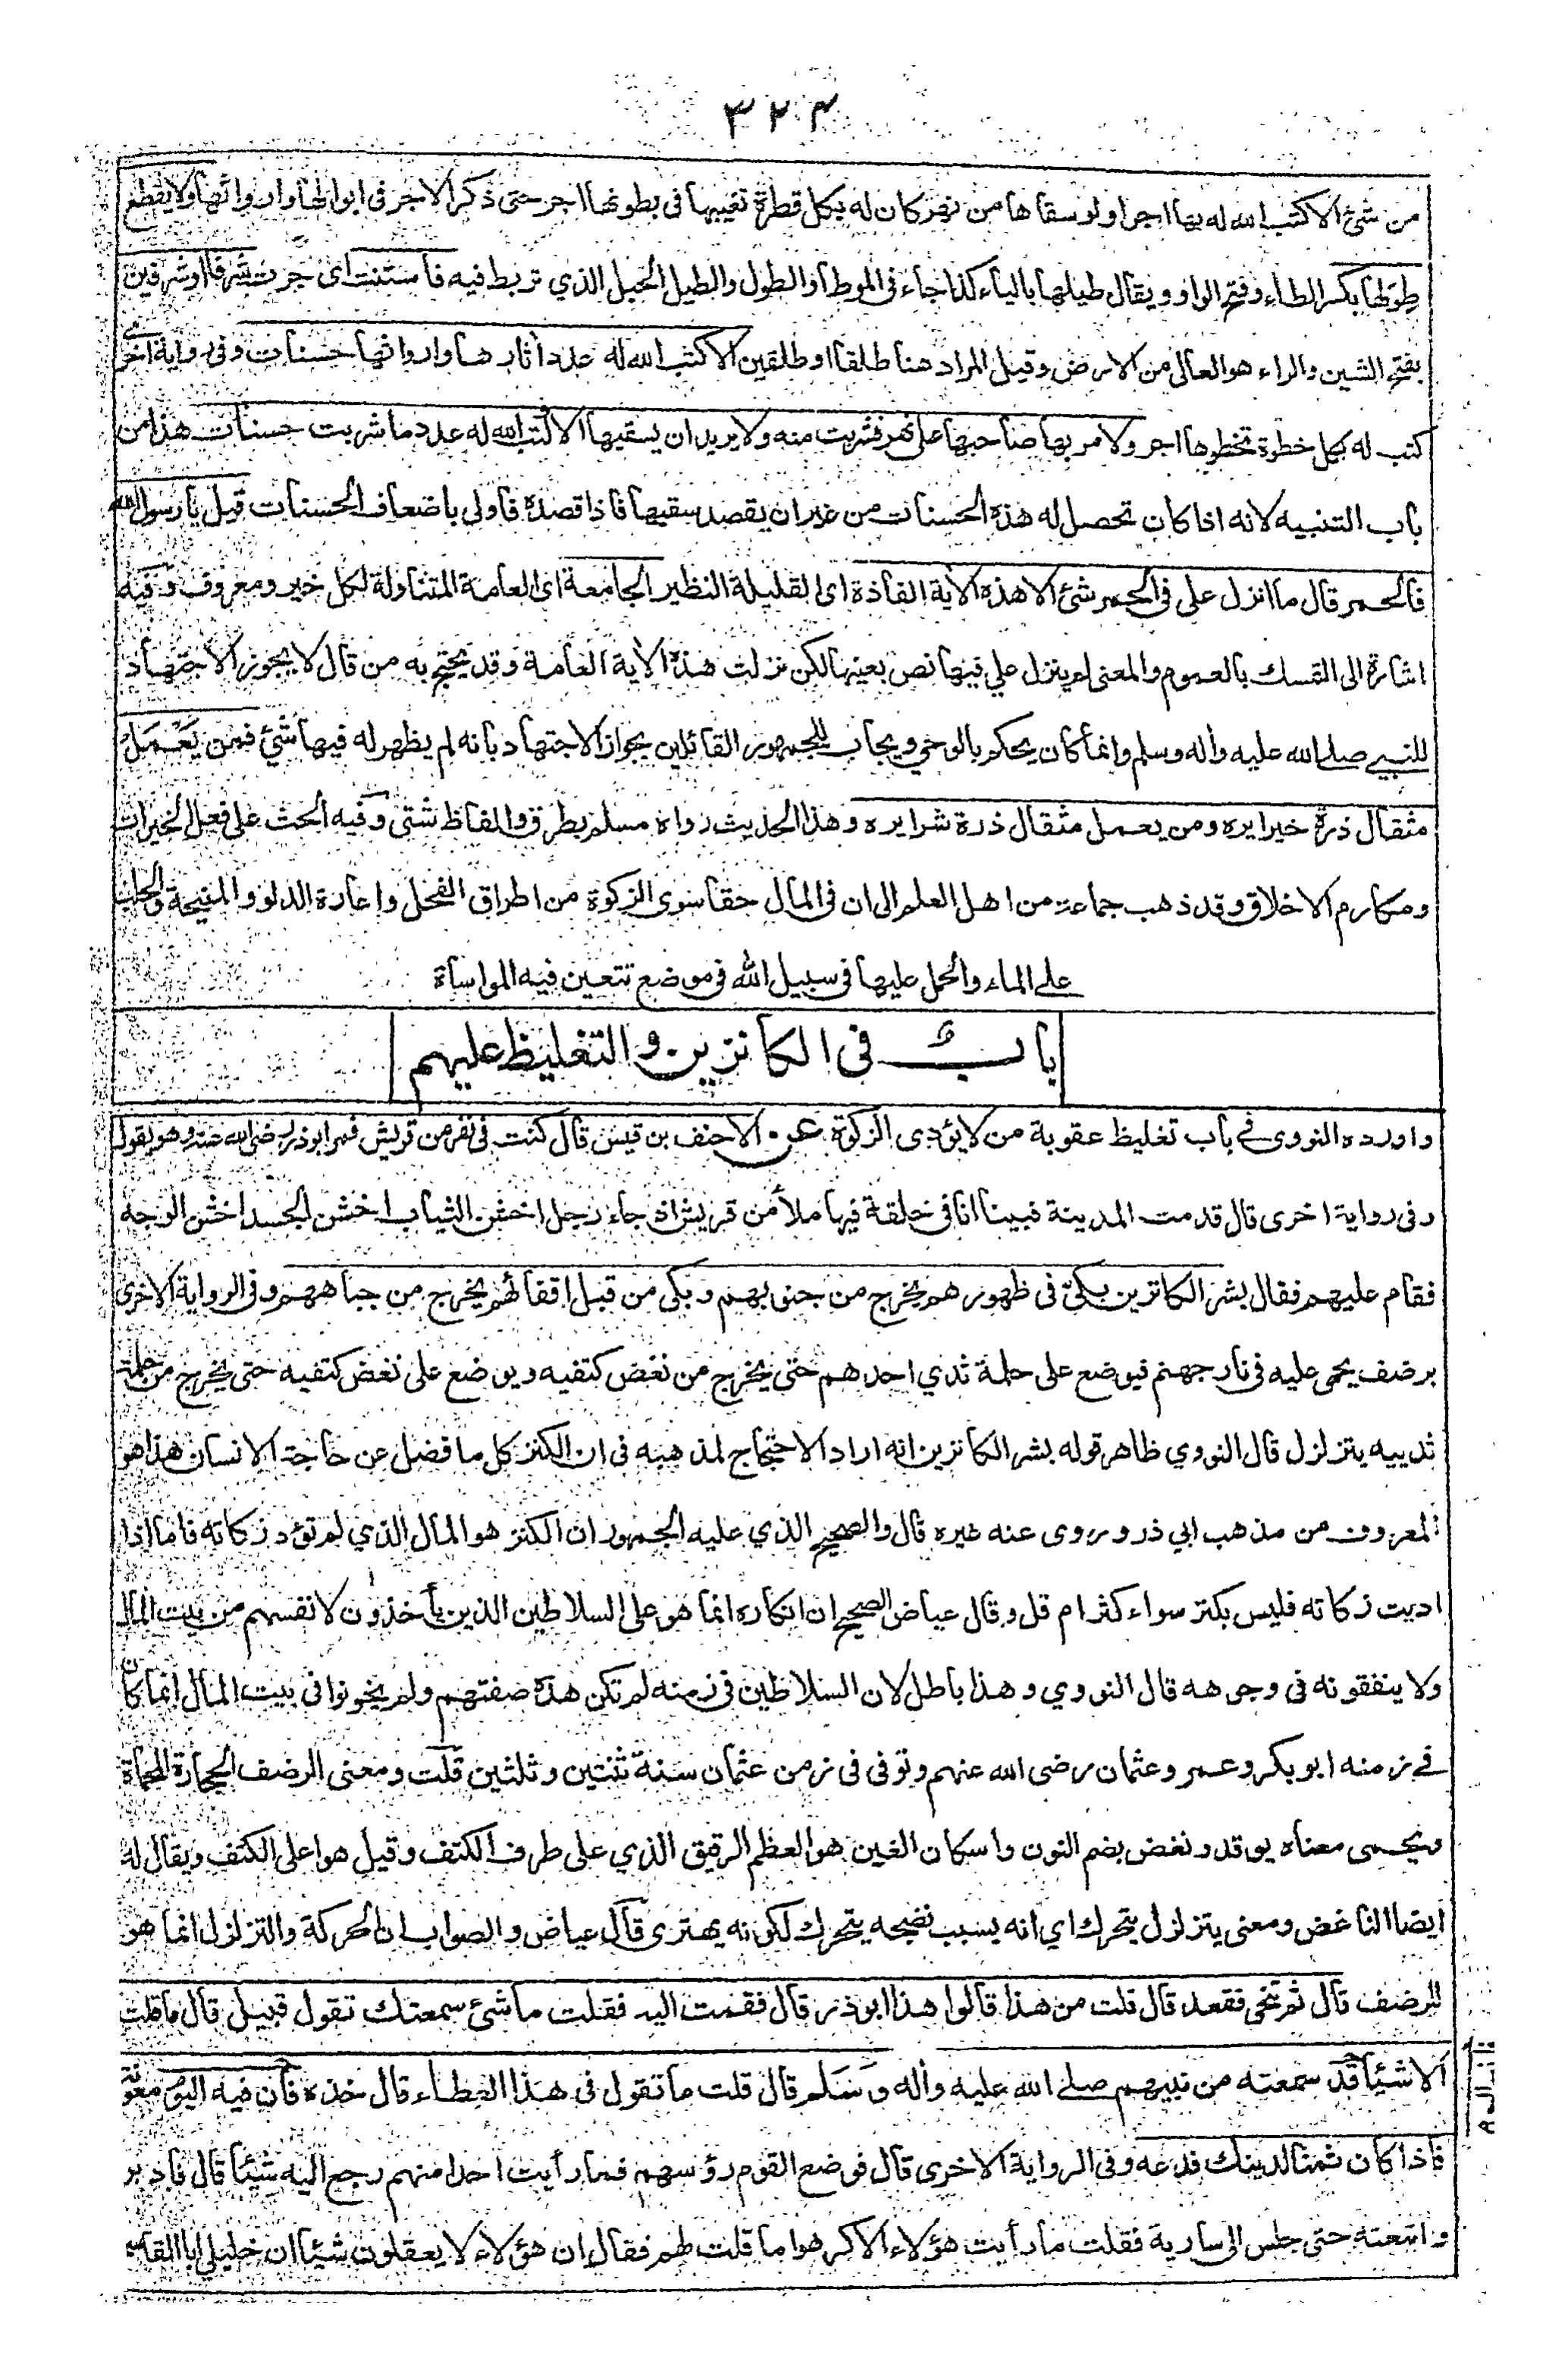 ٣٢٣
من شئ الا كتب الله له بها اجرا ولو سقاها من نهر كان له بكل قطرة تغيبها فى بطونها اجر حتى ذكر الاجر فى ابوالها وارواثها ولا يقطع
طولها بكسر الطاء وفتح الواو ويقال طيلها بالياء كذا جاء فى الموطأ والطول والطيل الحبل الذي تربط فيه فاستنت اى جرت شرفا او شرفين
بفتح الشين والراء هو العالى من الارض وقيل المراد هنا طلقا او طلقين الا كتب الله له عدد اثارها وارواثها حسنات وفى رواية اخرى
كتب له بكل خطوة تخطوها اجر ولا مر بها صاحبها على نهر فشربت منه ولا يريد ان يسقيها الا كتب الله له عدد ما شربت حسنات هذا من
باب التنبيه لانه اذا كان تحصل له هذه الحسنات من غير ان يقصد سقيها فاذا قصده فاولى باضعاف الحسنات قيل يا رسول الله
فالحمر قال ما انزل على فى الحمر شئ الا هذه الأية الفاذة اى القليلة النظير الجامعة اى العامة المتناولة لكل خير ومعروف وفيه
اشارة الى التمسك بالعموم والمعنى لم ينزل علي فيها نص بعينها لكن نزلت هذه الأية العامة وقد يحتج به من قال لا يجوز الاجتهاد
للنبي صلى الله عليه وأله وسلم وانما كان يحكم بالوحي ويجاب للجمهور القائلين بجواز الاجتهاد بانه لم يظهر له فيها شئ فمن يَعْمَلْ
مثقال ذرة خيرا يره ومن يعمل مثقال ذرة شرا يره وهذا الحديث رواه مسلم بطرق والفاظ شتى وفيه الحث على فعل الخيرات
ومكارم الاخلاق وقد ذهب جماعة من اهل العلم الى ان فى المال حقا سوى الزكوة من اطراق الفحل واعارة الدلو والمنيحة والحلب
على الماء والحمل عليها فى سبيل الله فى موضع تتعين فيه المواساة
بابٌ فى الكانزين والتغليظ عليهم
واورده النووى فى باب تغليظ عقوبة من لا يؤدى الزكوة عن الاحنف بن قيس قال كنت فى نفر من قريش فمر ابو ذر رضى الله عنه وهو يقول
وفى رواية اخرى قال قدمت المدينة فبينا انا فى حلقة فيها ملأ من قريش اذ جاء رجل اخشن الثياب اخشن الجسد اخشن الوجه
فقام عليهم فقال بشر الكانزين بكيّ فى ظهورهم يخرج من جنوبهم وبكى من قبل اقفائهم يخرج من جباههم وفى الرواية الاخرى
برضف يحمى عليه فى نار جهنم فيوضع على حلمة ثدي احدهم حتى يخرج من نغض كتفيه ويوضع على نغض كتفيه حتى يخرج من حلمة
ثدييه يتزلزل قال النووي ظاهر قوله بشر الكانزين انه اراد الاحتجاج لمذهبه فى ان الكنز كل ما فضل عن حاجة الانسان هذا هو
المعروف من مذهب ابي ذر وروى عنه غيره قال والصحيح الذي عليه الجمهور ان الكنز هو المال الذي لم تؤد زكاته فاما اذا
اديت زكاته فليس بكنز سواء كثر ام قل وقال عياض الصحيح ان انكاره انما هو على السلاطين الذين يأخذون لانفسهم من بيت المال
ولا ينفقونه فى وجوهه قال النووي وهذا باطل لان السلاطين فى زمنه لم تكن هذه صفتهم ولم يخونوا فى بيت المال انما كان
فى زمنه ابو بكر وعمر وعثمان رضى الله عنهم وتوفى فى زمن عثمان سنة ثنتين وثلثين قلت ومعنى الرضف الحجارة المحماة
ويحمى معناه يوقد ونغض بضم النون واسكان الغين هو العظم الرقيق الذي على طرف الكتف وقيل هو اعلى الكتف ويقال له
ايضا الناغض ومعنى يتزلزل يتحرك اي انه بسبب نضجه يتحرك لكونه يهترى قال عياض والصواب ان الحركة والتزلزل انما هو
للرضف قال ثم تنحى فقعد قال قلت من هذا قالوا هذا ابو ذر قال فقمت اليه فقلت ما شئ سمعتك تقول قبيل قال ما قلت
الا شيأ قد سمعته من نبيهم صلى الله عليه وأله وسلم قال قلت ما تقول فى هذا العطاء قال خذه فان فيه اليوم معونة
فاذا كان ثمنا لدينك فدعه وفى الرواية الاخرى قال فوضع القوم رؤسهم فما رأيت احدا منهم رجع اليه شيئا قال فادبر
واتبعته حتى جلس الى سارية فقلت ما رأيت هؤلاء الا كرهوا ما قلت لهم فقال ان هؤلاء لا يعقلون شيئا ان خليلي ابا القاسم